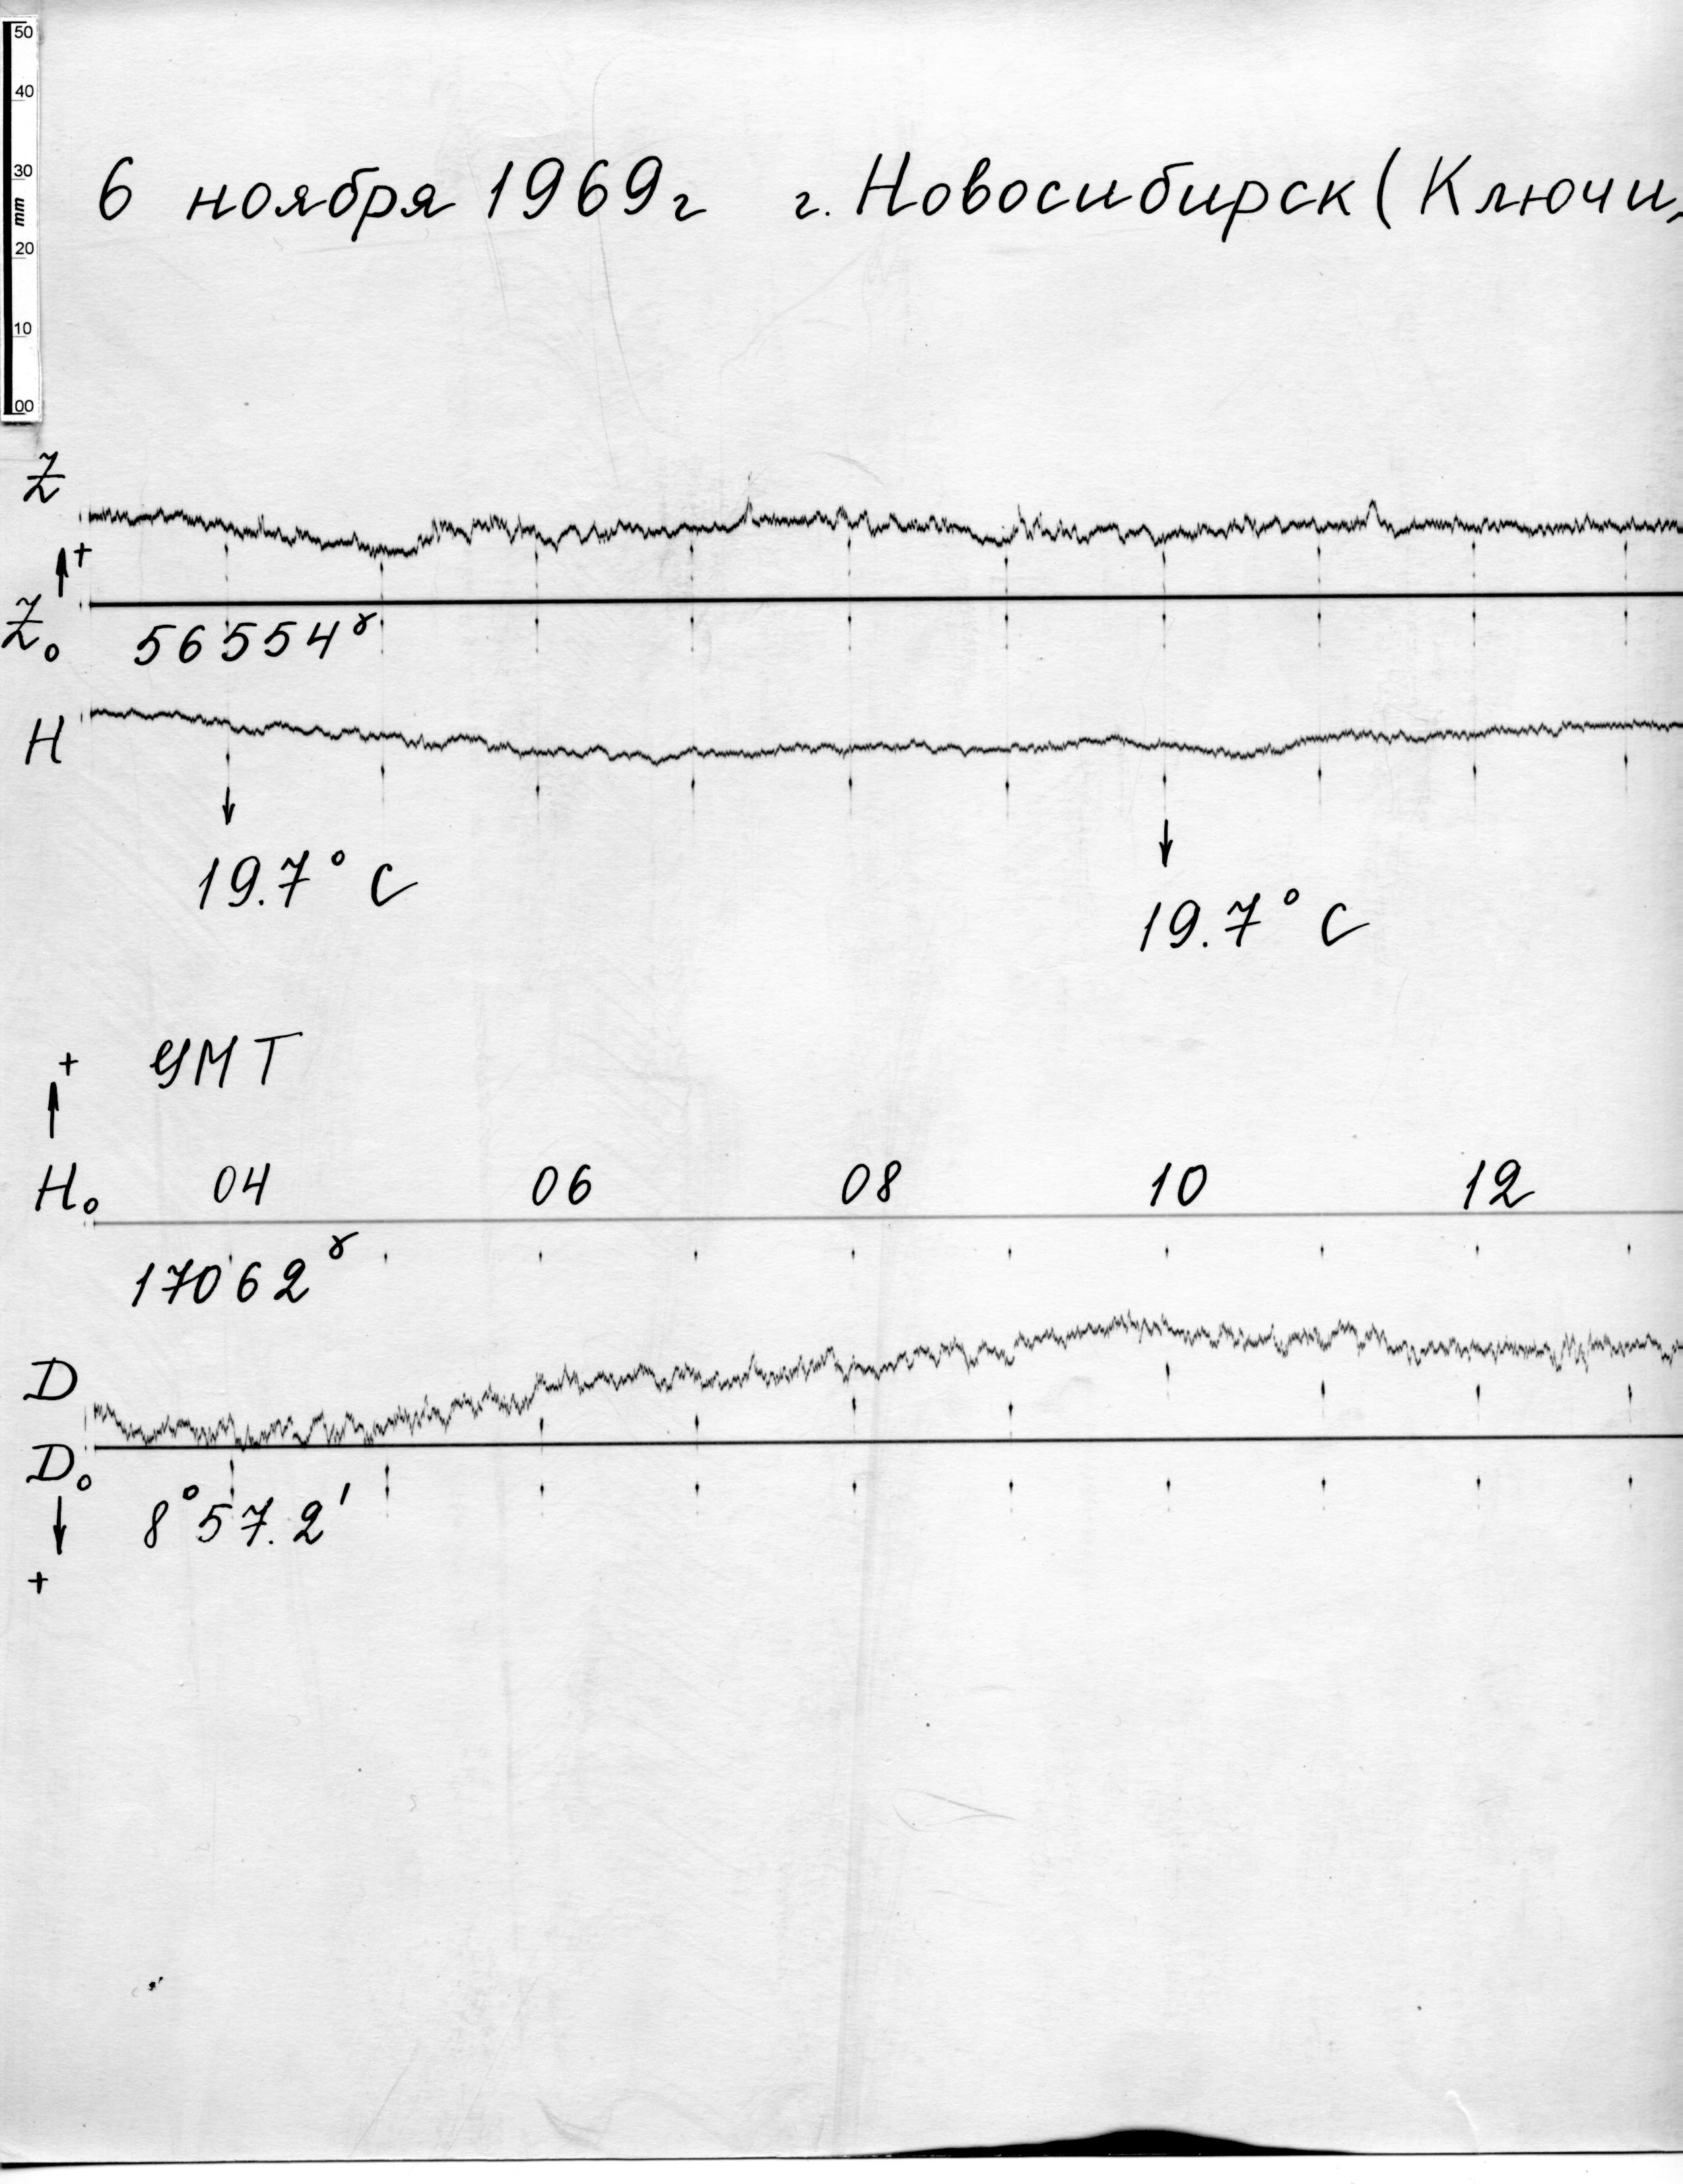 50
40
30
mm
20
10
00
6 ноября 1969г г. Новосибирск (Ключи,
Z
+
Z₀
56554ᵞ
H
19.7° C
19.7° C
+ УМТ
H₀ 04 06 08 10 12
17062ᵞ
D
D₀
8°57.2'
+